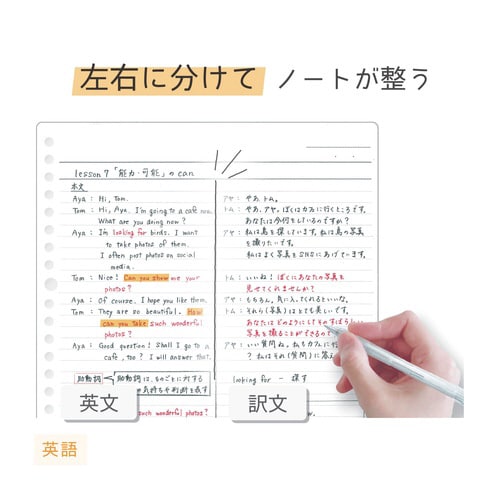 左右に分けて ノートが整う
lesson 7 「能力・可能」の can
本文
Aya : Hi, Tom.
Tom : Hi, Aya. I'm going to a cafe now.
What are you doing now?
Aya : I'm looking for birds. I want
to take photos of them.
I often post photos on social
media.
Tom : Nice! Can you show me your
photos?
Aya : Of course. I hope you like them.
Tom : They are so beautiful. How
can you take such wonderful
photos?
Aya : Good question! Shall I go to a
cafe, too? I will answer that.
助動詞 助動詞は、ものごとに対する
気持ちや判断を表す
such wonderful photos?
アヤ : やあ、トム。
トム : やあ、アヤ。ぼくはカフェに行くところです。
あなたは今何をしているのですか?
アヤ : 私は鳥を探しています。私は鳥の写真
を撮りたいです。
私はよく写真をSNSにあげています。
トム : いいね! ぼくにあなたの写真を
見せてくれませんか?
アヤ : もちろん。気に入ってくれるといいな。
トム : それら(写真)はとても美しいです。
あなたはどのようにしてそのすばらしい
写真を撮ることができるので
アヤ : いい質問ね。私もカフェに行
? 私はそれ(質問)に答え
looking for − 探す
英文
訳文
英語